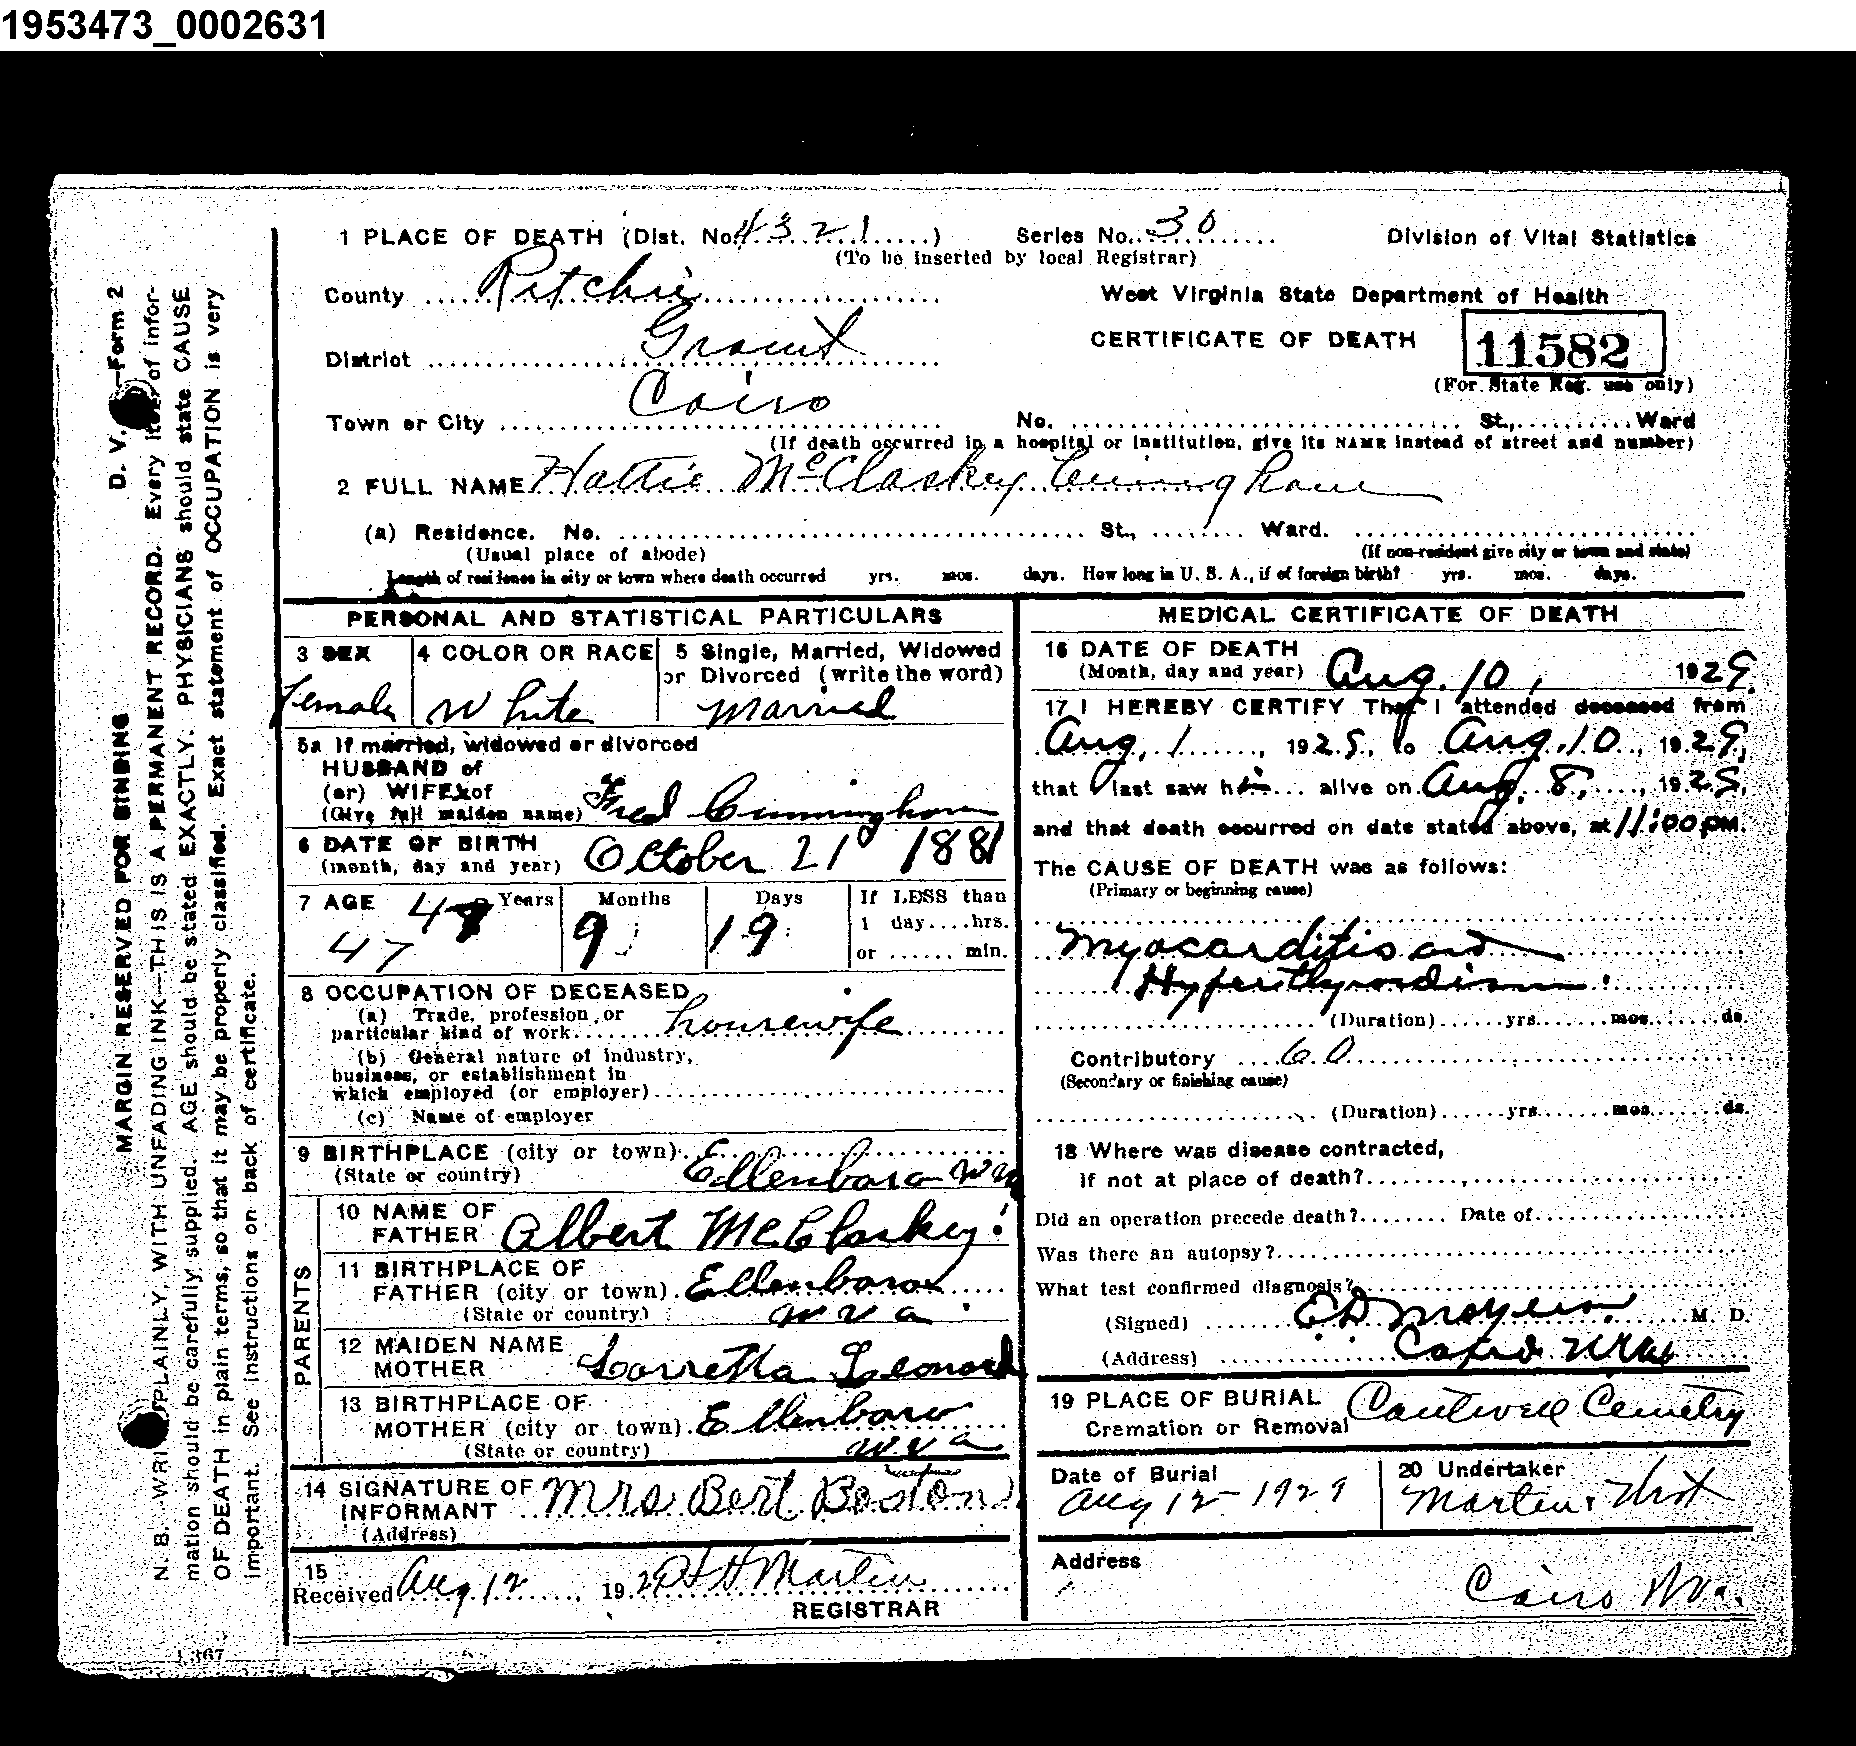 1953473_0002631
1 PLACE OF DEATH (Dist. No. 4321) Series No. 30 Division of Vital Statistics
(To be inserted by local Registrar)
County Ritchie West Virginia State Department of Health
District Grant CERTIFICATE OF DEATH 11582
(For State Reg. use only)
Town or City Cairo No. St., Ward
(If death occurred in a hospital or institution, give its NAME instead of street and number)
2 FULL NAME Hattie McClaskey Cuningham
(a) Residence. No. St., Ward.
(Usual place of abode) (If non-resident give city or town and state)
Length of residence in city or town where death occurred yrs. mos. days. How long in U. S. A., if of foreign birth? yrs. mos. days.
PERSONAL AND STATISTICAL PARTICULARS
3 SEX 4 COLOR OR RACE 5 Single, Married, Widowed
or Divorced (write the word)
Female White Married
5a If married, widowed or divorced
HUSBAND of
(or) WIFE of
(Give full maiden name) Fred Cunningham
6 DATE OF BIRTH
(month, day and year) October 21 1881
7 AGE 48 Years Months Days If LESS than
1 day....hrs.
47 9 19
or ...... min.
8 OCCUPATION OF DECEASED
(a) Trade, profession, or
particular kind of work housewife
(b) General nature of industry,
business, or establishment in
which employed (or employer)
(c) Name of employer
9 BIRTHPLACE (city or town)
(State or country) Ellenboro W Va
PARENTS
10 NAME OF
FATHER Albert McClaskey
11 BIRTHPLACE OF
FATHER (city or town) Ellenboro
(State or country) W Va
12 MAIDEN NAME
MOTHER Lorretta Leonard
13 BIRTHPLACE OF
MOTHER (city or town) Ellenboro
(State or country) W Va
14 SIGNATURE OF
INFORMANT Mrs Bert Boston
(Address)
15
Received Aug 12, 1929 H H Martin
REGISTRAR
MEDICAL CERTIFICATE OF DEATH
16 DATE OF DEATH
(Month, day and year) Aug. 10, 1929
17 I HEREBY CERTIFY That I attended deceased from
Aug, 1, 1929, to Aug. 10, 1929,
that I last saw h alive on Aug. 8, 1929,
and that death occurred on date stated above, at 11:00 PM.
The CAUSE OF DEATH was as follows:
(Primary or beginning cause)
Myocarditis and
Hyperthyroidism
(Duration) yrs. mos. ds.
Contributory
(Secondary or finishing cause)
(Duration) yrs. mos. ds.
18 Where was disease contracted,
if not at place of death?
Did an operation precede death? Date of
Was there an autopsy?
What test confirmed diagnosis?
(Signed) M. D.
(Address) Cairo W Va
19 PLACE OF BURIAL
Cremation or Removal Cantwell Cemetry
Date of Burial
Aug 12 1929
20 Undertaker
Martin
Address
Cairo W Va.
D. V. —Form 2
MARGIN RESERVED FOR BINDING
N. B. WRITE PLAINLY, WITH UNFADING INK—THIS IS A PERMANENT RECORD. Every item of infor-
mation should be carefully supplied. AGE should be stated EXACTLY. PHYSICIANS should state CAUSE
OF DEATH in plain terms, so that it may be properly classified. Exact statement of OCCUPATION is very
important. See instructions on back of certificate.